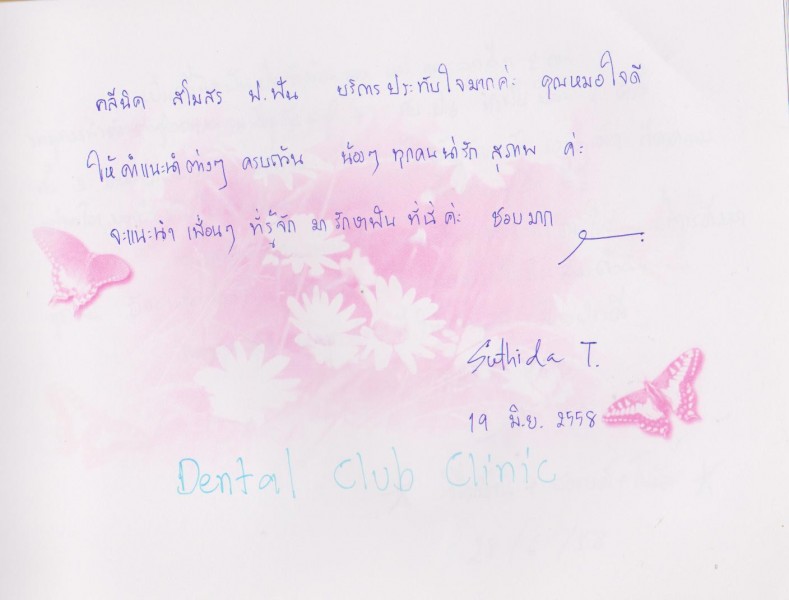 คลีนิค สโมสร ฟ.ฟัน บริการประทับใจมากค่ะ คุณหมอใจดี
ให้คำแนะนำต่างๆ ครบถ้วน น้องๆ ทุกคนน่ารัก สุภาพ ค่ะ
จะแนะนำ เพื่อนๆ ที่รู้จัก มารักษาฟัน ที่นี่ค่ะ ชอบมาก
Suthida T.
19 มิ.ย. 2558
Dental Club Clinic